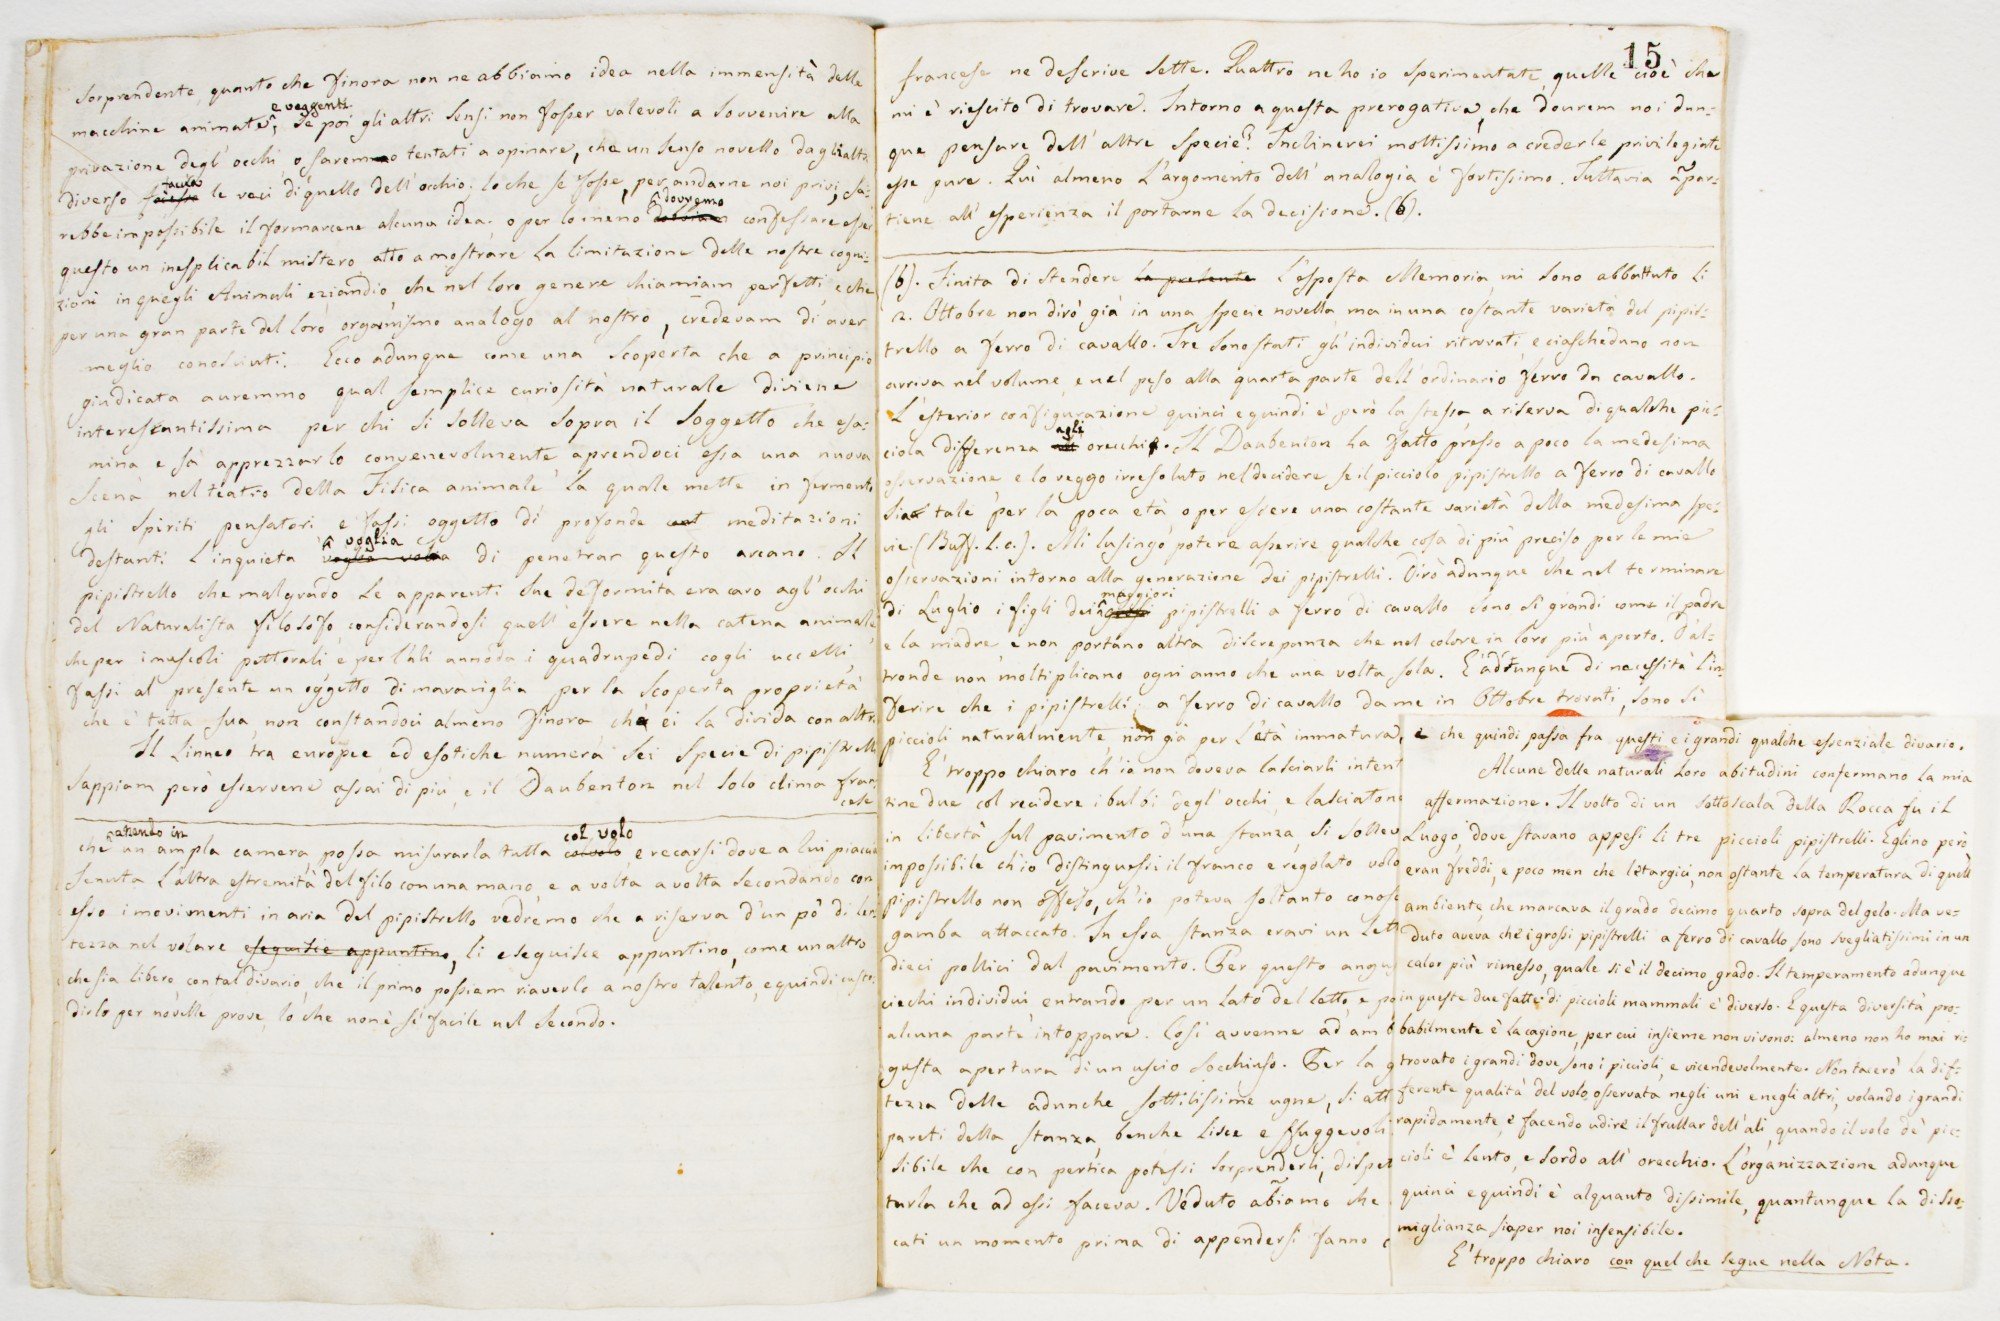 sorprendente, quanto che finora non ne abbiamo idea nella immensità delle
macchine animate e veggenti. Se poi gli altri sensi non fosser valevoli a sovvenire alla
privazione degl' occhi, saremmo tentati a opinare, che un senso novello dagli altri
diverso faccia le veci di quello dell' occhio; lo che se fosse, per andarne noi privi, sa-
rebbe impossibile il formarcene alcuna idea; o per lo meno dovremo confessare esser
questo un inesplicabil mistero atto a mostrare la limitazione delle nostre cogni-
zioni in quegli Animali eziandio, che nel loro genere chiamiam perfetti, e che
per una gran parte del loro organismo analogo al nostro, credevam di aver
meglio conosciuti. Ecco adunque come una scoperta che a principio
giudicata auremmo qual semplice curiosità naturale diviene
interessantissima per chi si solleva sopra il soggetto che esa-
mina e sà apprezzarlo convenevolmente aprendoci essa una nuova
Scena nel teatro della Fisica animale la quale mette in fermento
gli spiriti pensatori e fassi oggetto di profonde meditazioni
destanti l'inquieta voglia di penetrar questo arcano. Il
pipistrello che malgrado le apparenti sue deformita era caro agl' occhi
del Naturalista filosofo, considerandosi quell' essere nella catena animale,
che per i muscoli pettorali e per l'ali annoda i quadrupedi cogli uccelli,
fassi al presente un oggetto di maraviglia per la scoperta proprietà
che è tutta sua, non constandoci almeno finora che ei la divida con altri.
Il Linneo tra europee ed esotiche numera sei specie di pipistrelli
Sappiam però esservene assai di più, e il Daubenton nel solo clima fran-
cese
che atando in un ampla camera, possa misurarla tutta col volo, e recarsi dove a lui piaccia
Tenuta l'altra estremità del filo con una mano, e a volta a volta secondando con
esso i movimenti in aria del pipistrello vedremo che a riserva d'un pò di len-
tezza nel volare eseguisce appuntino, li eseguisce appuntino, come un altro
che sia libero, con tal divario, che il primo possiam riaverlo a nostro talento, e quindi custo-
dirlo per novelle prove, lo che non è sì facile nel secondo.
15
francese ne descrive sette. Quattro ne ho io sperimentate, quelle cioè che
mi è riescito di trovare. Intorno a questa prerogativa, che dourem noi dun-
que pensare dell' altre specie? Inclinerei moltissimo a crederle privilegiate
esse pure. Quì almeno l'argomento dell' analogia è fortissimo. Tuttavia appar-
tiene all' esperienza il portarne la decisione. (b).
(b). Finita di stendere la presente l'esposta Memoria, mi sono abbattuto li
2. Ottobre non dirò già in una specie novella, ma in una costante varietà del pipis-
trello a ferro di cavallo. Tre sono stati gl' individui ritrovati, e ciascheduno non
arriva nel volume, e nel peso alla quarta parte dell' ordinario ferro da cavallo.
L'esterior configurazione quinci e quindi è però la stessa a riserva di qualche pic-
ciola differenza agli orecchi. Il Daubenton ha fatto presso a poco la medesima
osservazione e lo veggo irresoluto nel decidere se il picciolo pipistrello a ferro di cavallo
sia tale per la poca età o per essere una costante varietà della medesima spe-
cie (Buff. l. c.). Mi lusingo potere asserire qualche cosa di più preciso per le mie
osservazioni intorno alla generazione dei pipistrelli. Dirò adunque che nel terminare
di Luglio i figli dei maggiori pipistrelli a ferro di cavallo sono sì grandi come il padre
e la madre, e non portano altra discrepanza che nel colore in loro più aperto. D'al-
tronde non moltiplicano ogni anno che una volta sola. È adunque di necessità l'in-
ferire che i pipistrelli a ferro di cavallo da me in Ottobre trovati, sono sì
piccioli naturalmente, non già per l'età immatura,
È troppo chiaro ch'io non doveva lasciarli intent
zine due col recidere i bulbi degl' occhi, e lasciatone
in libertà sul pavimento d'una stanza, si sollev
impossibile ch'io distinguessi il franco e regolato volo
pipistrello non offeso, ch'io poteva soltanto conosc
gamba attaccato. In essa stanza eravi un lett
dieci pollici dal pavimento. Per questo angu
ciechi individui entrando per un lato del letto, e po
alcuna parte intoppare. Così avvenne ad amb
gusta apertura di un uscio socchiuso. Per la g
tezza delle adunche sottilissime ugne, si att
pareti della stanza, benche lisce e sfuggevoli
sibile che con pertica potessi sorprenderli, disper
turla che ad essi faceva. Veduto abbiamo che
cati un momento prima di appendersi fanno
e che quindi passa fra questi e i grandi qualche essenziale divario.
Alcune delle naturali loro abitudini confermano la mia
affermazione. Il volto di un sottoscala della Rocca fu il
Luogo, dove stavano appesi li tre piccioli pipistrelli. Eglino però
eran freddi, e poco men che letargici, non ostante la temperatura di quell'
ambiente, che marcava il grado decimo quarto sopra del gelo. Ma ve-
duto aveva che i grossi pipistrelli a ferro di cavallo sono svegliatissimi in un
calor più rimesso, quale si è il decimo grado. Il temperamento adunque
in queste due fatte di piccioli mammali è diverso. E questa diversità pro-
babilmente è la cagione, per cui insieme non vivono: almeno non ho mai ri-
trovato i grandi dove sono i piccioli, e vicendevolmente. Non tacerò la dif-
ferente qualità del volo osservata negli uni e negli altri, volando i grandi
rapidamente, e facendo udire il frullar dell'ali, quando il volo de' pic-
cioli è lento, e sordo all' orecchio. L'organizzazione adunque
quinci e quindi è alquanto dissimile, quantunque la disso-
miglianza sia per noi insensibile.
E' troppo chiaro con quel che segue nella Nota.